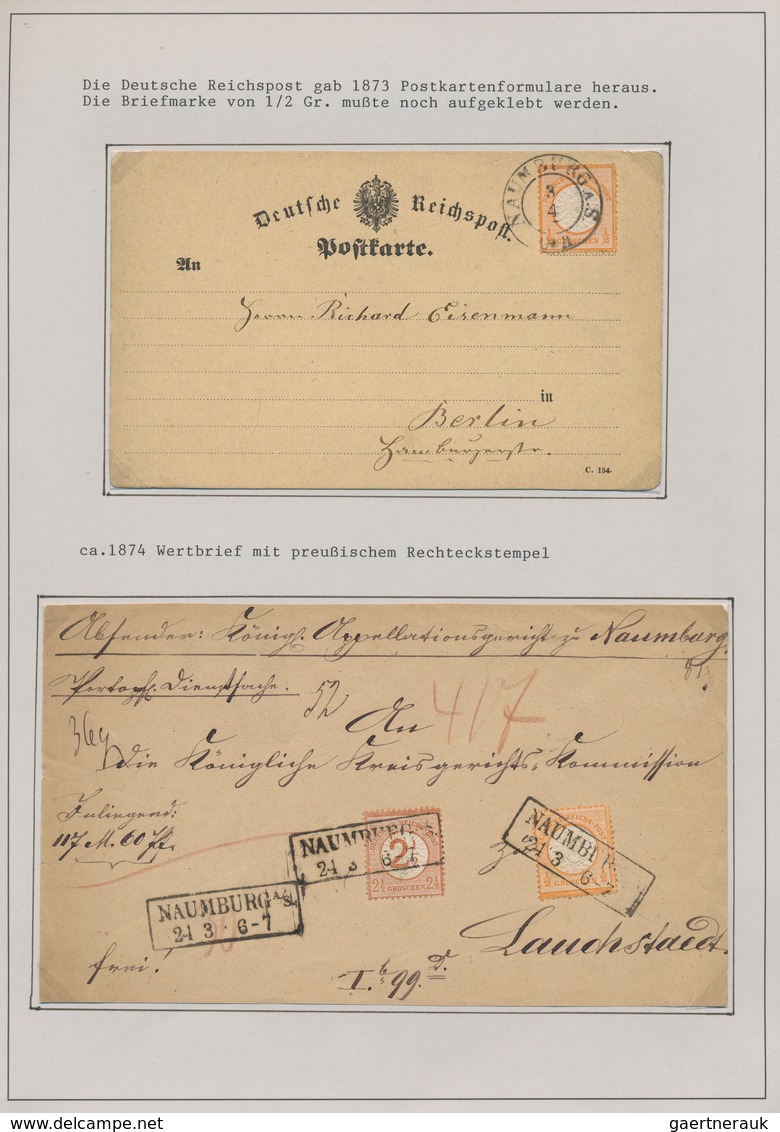 Die Deutsche Reichspost gab 1873 Postkartenformulare heraus.
Die Briefmarke von 1/2 Gr. mußte noch aufgeklebt werden.
Deutsche Reichspost.
Postkarte.
NAUMBURG A/S
3
4
½ GROSCHEN ½
An
Herrn Richard Eisenmann
in
Berlin
Hamburgerstr.
C. 154.
ca.1874 Wertbrief mit preußischem Rechteckstempel
Absender: Königl. Appellationsgericht zu Naumburg
Portopfl. Dienstsache.
52
An
417
Die Königliche Kreisgerichts-Kommission
Inliegend:
117 M. 60 Pf.
NAUMBURG
24 3 6-7
2½
2½ GROSCHEN 2½
NAUMBUR
24 3 6-7
½ GROSCHEN ½
zu
NAUMBURG A/S.
24 3 6-7
Lauchstaedt.
frei!
I. b 99. D.
gaertnerauk